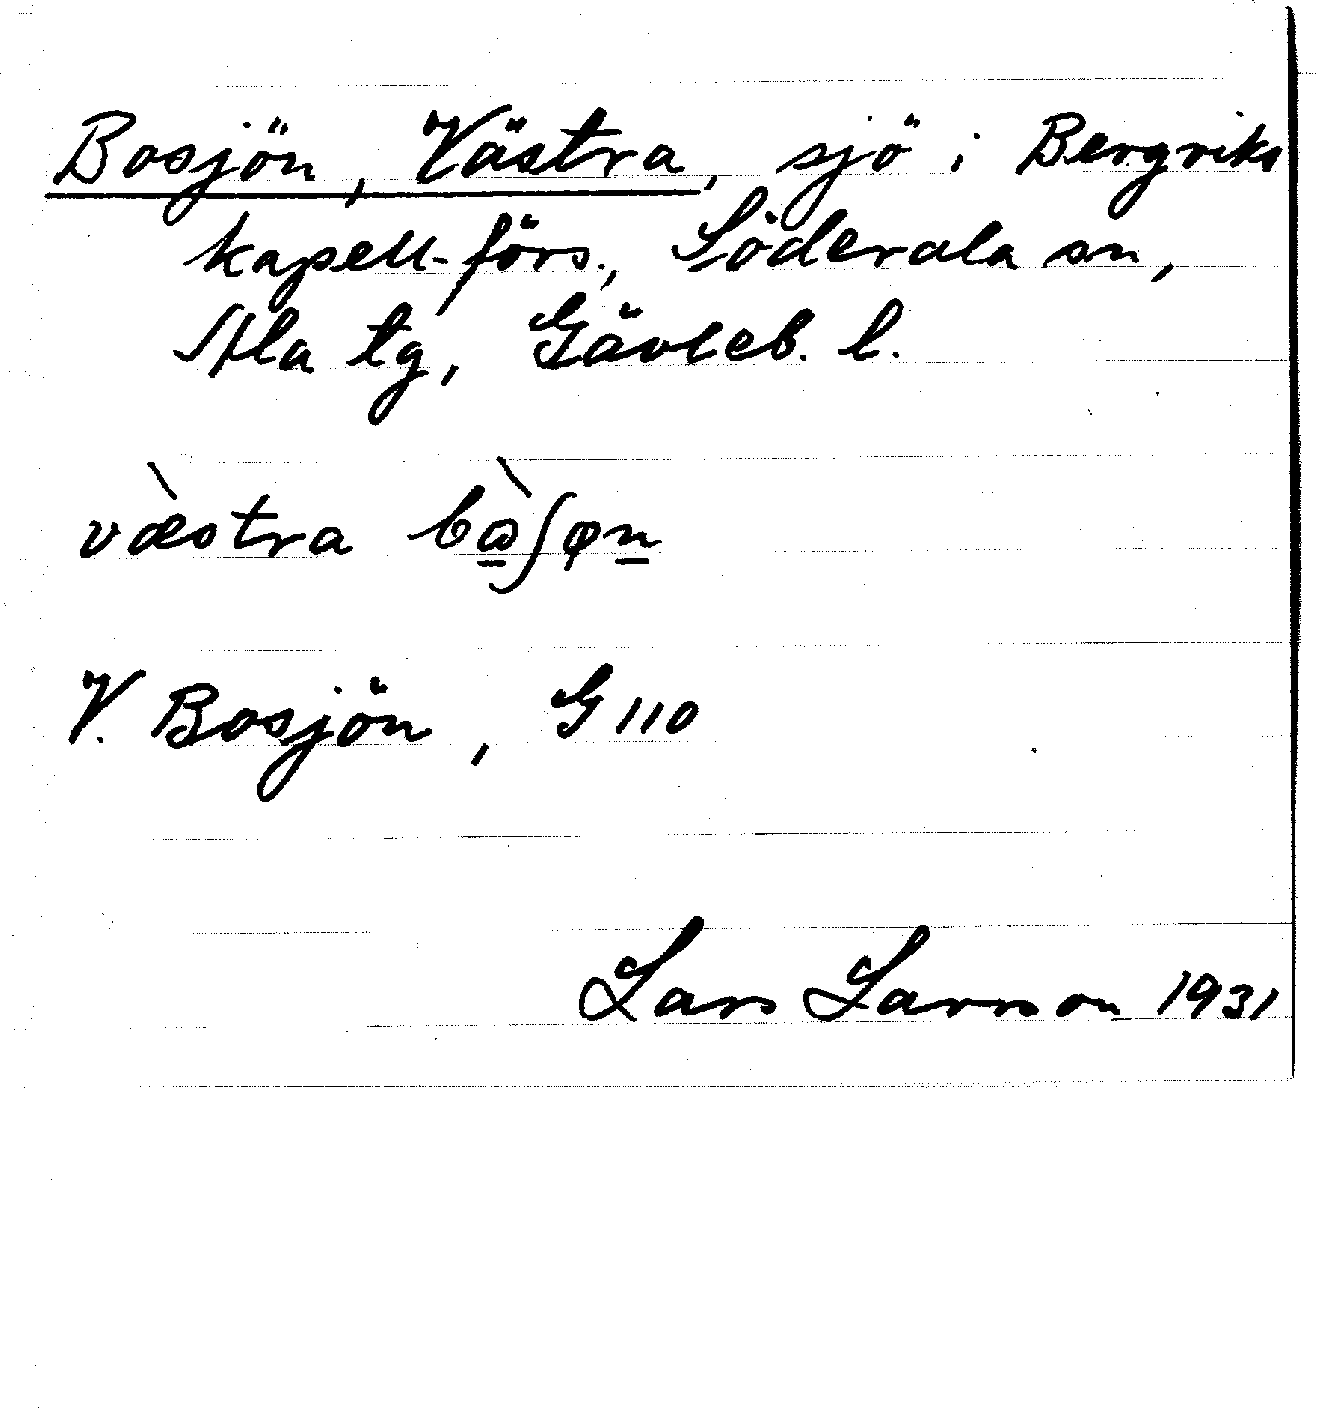 Bosjön, Västra, sjö i Bergviks
kapell-förs., Söderala sn,
Ala tg, Gävleb. l.
væ̀stra bὼʃøn
V. Bosjön, G 110
Lars Larsson 1931